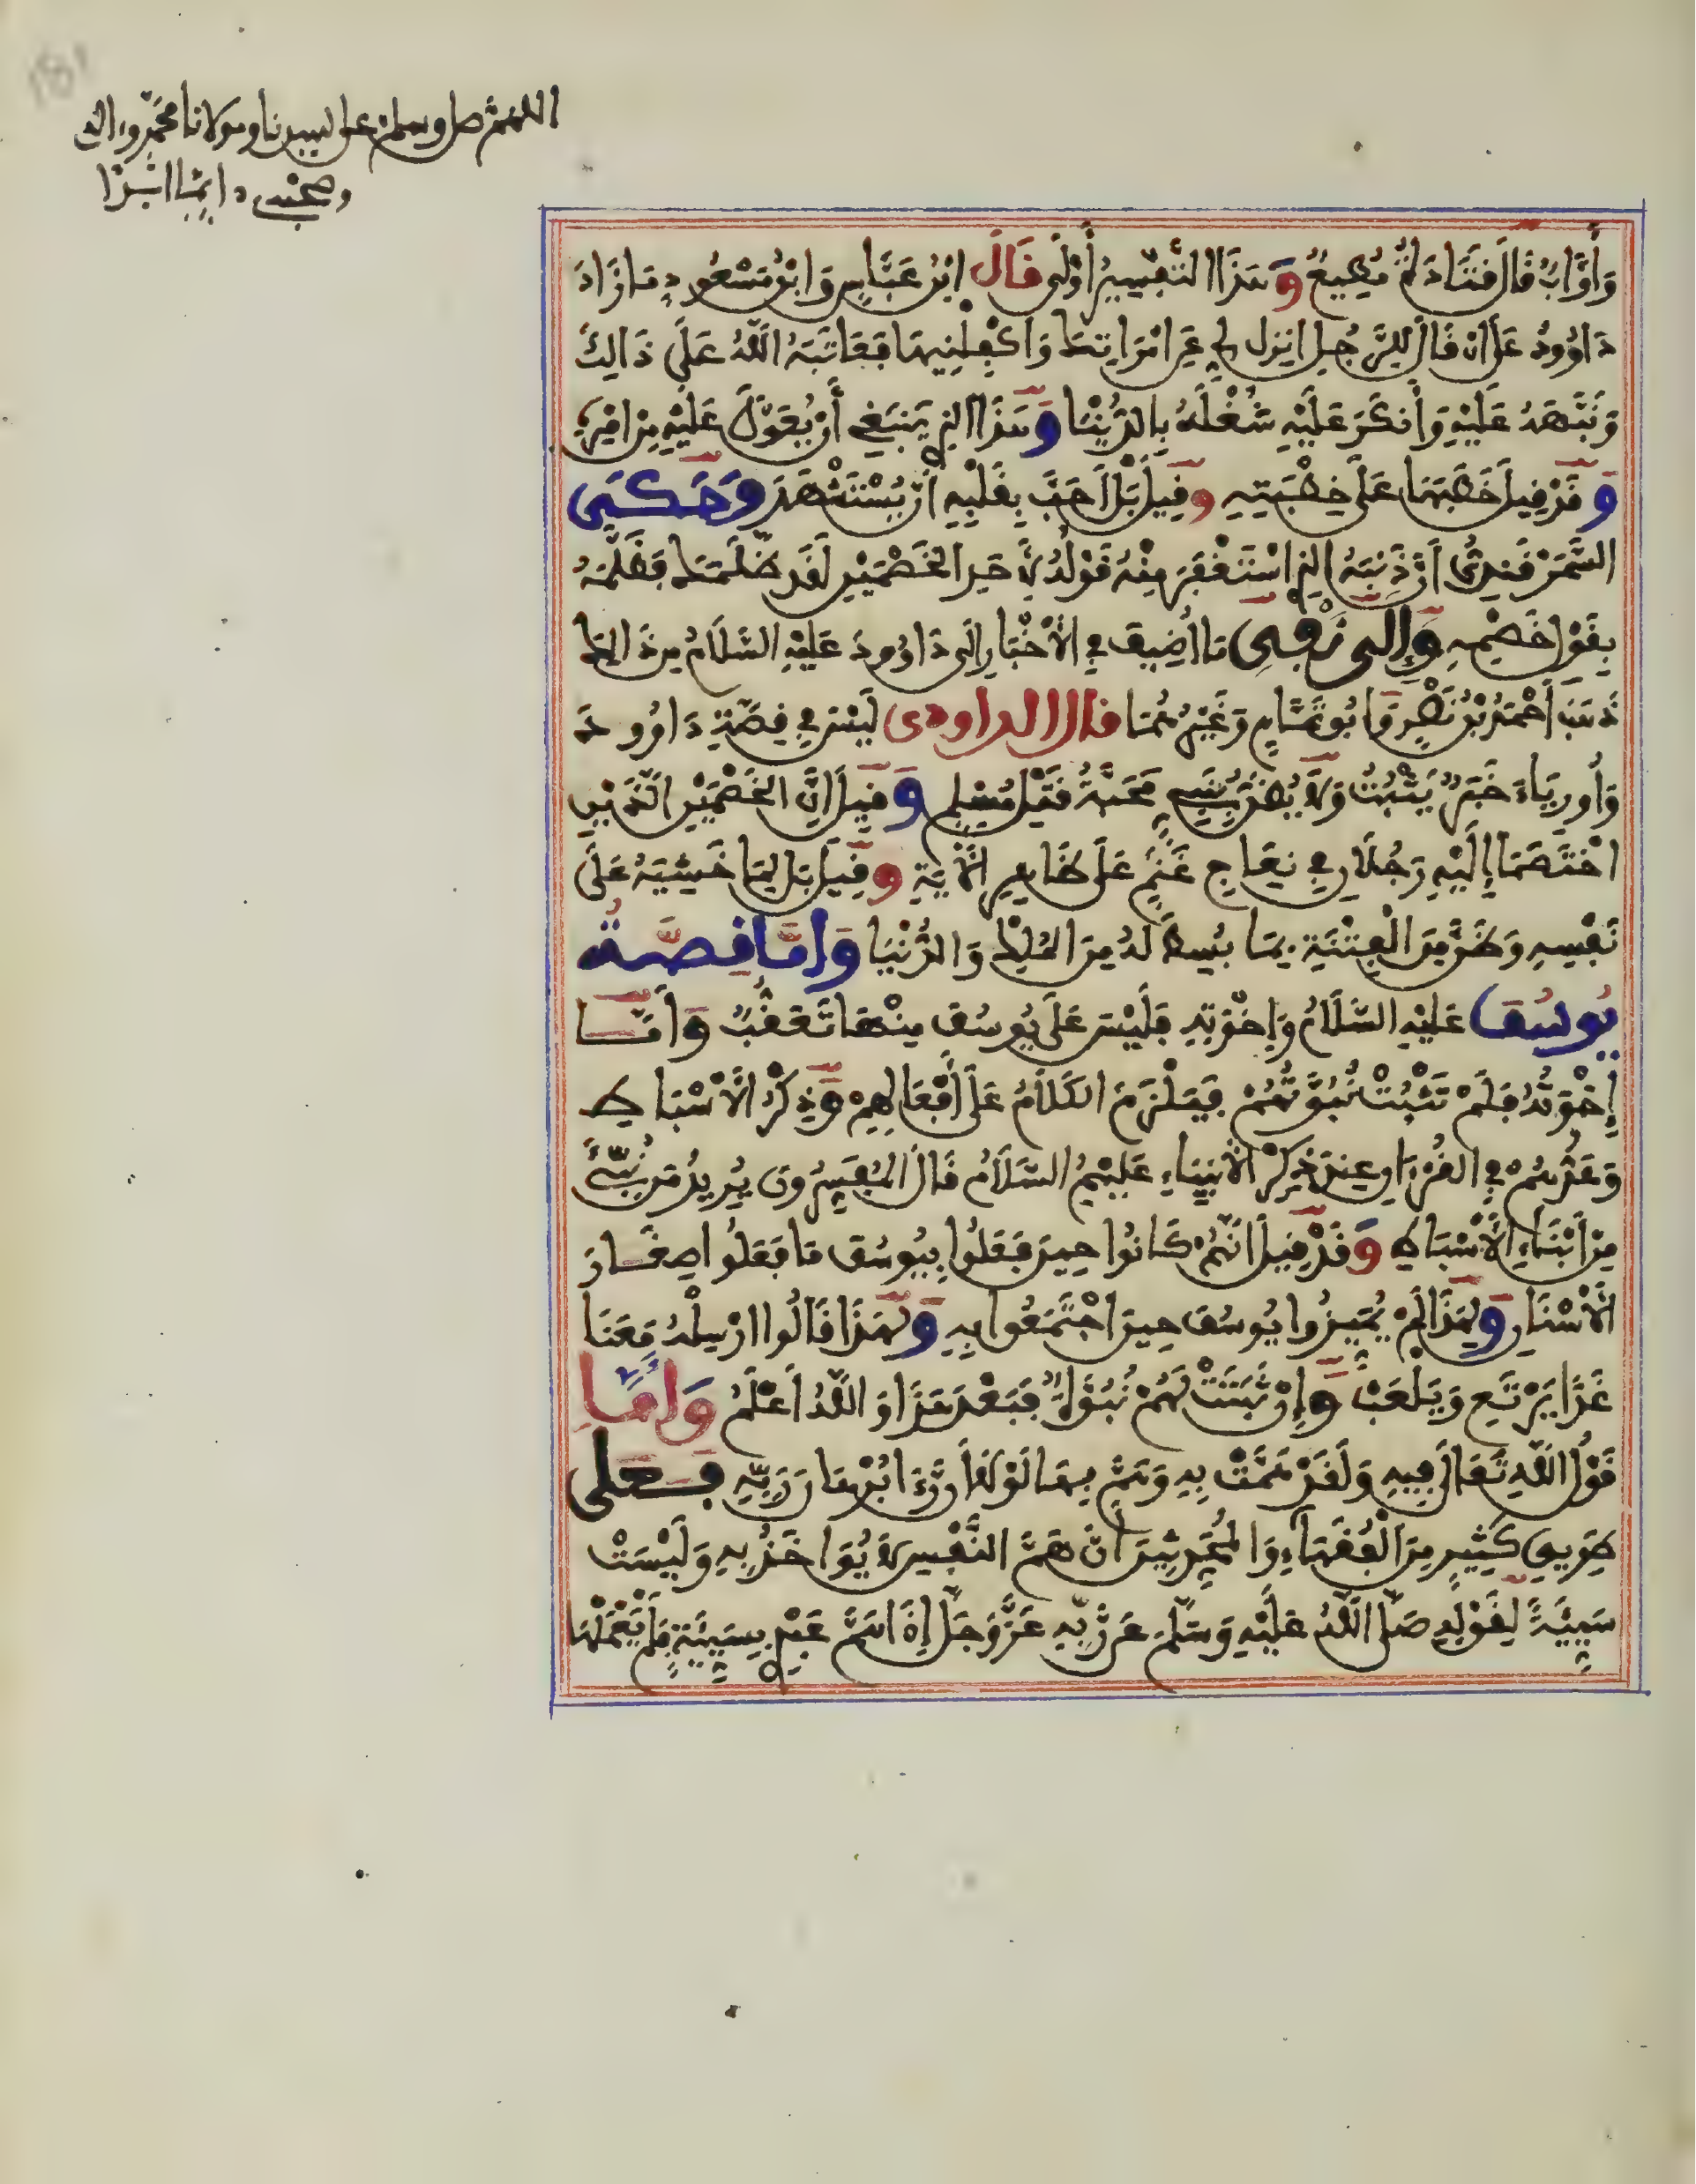 اللهم صل وسلم على سيدنا ومولانا محمد واله
وصحبه دايما ابدا
وَأَوَّابٌ قَالَ قَتَادَةُ مُطِيعٌ وَهَذَا التَّفْسِيرُ أَوْلَى قَالَ ابْنُ عَبَّاسٍ وَابْنُ مَسْعُودٍ مَا زَادَ
دَاوُودُ عَلَى أَنْ قَالَ لِلرَّجُلِ انْزِلْ لِي عَنِ امْرَأَتِكَ وَأَكْفِلْنِيهَا فَعَاتَبَهُ اللَّهُ عَلَى ذَالِكَ
وَنَبَّهَهُ عَلَيْهِ وَأَنْكَرَ عَلَيْهِ شُغْلَهُ بِالدُّنْيَا وَهَذَا الذِي يَنْبَغِي أَنْ يُعَوَّلَ عَلَيْهِ مِنْ أَمْرِهِ
وَقَدْ قِيلَ خَطَبَهَا عَلَى خِطْبَتِهِ وَقِيلَ بَلْ أَحَبَّ بِقَلْبِهِ أَنْ يُسْتَشْهَدَ وَحَكَى
السَّمَرْقَنْدِيُّ أَنَّ ذَنْبَهُ الذِي اسْتَغْفَرَ مِنْهُ قَوْلُهُ لِأَحَدِ الْخَصْمَيْنِ لَقَدْ ظَلَمَكَ فَظَلَّمَهُ
بِقَوْلِ خَصْمِهِ وَإِلَى نَفْيِ مَا أُضِيفَ فِي الْأَخْبَارِ إِلَى دَاوُودَ عَلَيْهِ السَّلَامُ مِنْ ذَالِكَ
ذَهَبَ أَحْمَدُ بْنُ نَصْرٍ وَأَبُو تَمَّامٍ وَغَيْرُهُمَا قال الداودى لَيْسَ فِي قِصَّةِ دَاوُودَ
وَأُورِيَاءَ خَبَرٌ يَثْبُتُ وَلَا يُظَنُّ بِنَبِيٍّ مَحَبَّةُ قَتْلِ مُسْلِمٍ وَقِيلَ إِنَّ الْخَصْمَيْنِ الَّذَيْنِ
اخْتَصَمَا إِلَيْهِ رَجُلَانِ فِي نِعَاجِ غَنَمٍ عَلَى ظَاهِرِ الْآيَةِ وَقِيلَ بَلْ لِمَا خَشِيَهُ عَلَى
نَفْسِهِ وَظَنَّ مِنَ الْفِتْنَةِ بِمَا بُسِطَ لَهُ مِنَ الْمُلْكِ وَالدُّنْيَا وَأَمَّا قِصَّةُ
يُوسُفَ عَلَيْهِ السَّلَامُ وَإِخْوَتِهِ فَلَيْسَ عَلَى يُوسُفَ مِنْهَا تَعَقُّبٌ وَأَمَّا
إِخْوَتُهُ فَلَمْ تَثْبُتْ نُبُوَّتُهُمْ فَيَلْزَمَ الْكَلَامُ عَلَى أَفْعَالِهِمْ وَذِكْرُ الْأَسْبَاطِ
وَعَدُّهُمْ فِي الْقُرْآنِ عِنْدَ ذِكْرِ الْأَنْبِيَاءِ عَلَيْهِمُ السَّلَامُ قَالَ الْمُفَسِّرُونَ يُرِيدُ مَنْ نُبِّئَ
مِنْ أَبْنَاءِ الْأَسْبَاطِ وَقَدْ قِيلَ أَنَّهُمْ كَانُوا حِينَ فَعَلُوا بِيُوسُفَ مَا فَعَلُوا صِغَارَ
الْأَسْنَانِ وَلِهَذَا لَمْ يُمَيِّزُوا يُوسُفَ حِينَ اجْتَمَعُوا بِهِ وَلِهَذَا قَالُوا ارْسِلْهُ مَعَنَا
غَدًا يَرْتَعِ وَيَلْعَبْ وَإِنْ ثَبَتَتْ لَهُمْ نُبُوَّةٌ فَبَعْدَ هَذَا وَاللَّهُ أَعْلَمُ وَأَمَّا
قَوْلُ اللَّهِ تَعَالَى فِيهِ وَلَقَدْ هَمَّتْ بِهِ وَهَمَّ بِهَا لَوْلَا أَنْ رَّءَا بُرْهَانَ رَبِّهِ فَعَلَى
طَرِيقِ كَثِيرٍ مِنَ الْفُقَهَاءِ وَالْمُحَدِّثِينَ أَنَّ هَمَّ النَّفْسِ لَا يُوَاخَذُ بِهِ وَلَيْسَتْ
سَيِّئَةً لِقَوْلِهِ صَلَّى اللَّهُ عَلَيْهِ وَسَلَّمَ عَنْ رَبِّهِ عَزَّ وَجَلَّ إِذَا هَمَّ عَبْدِي بِسَيِّئَةٍ فَلَمْ يَعْمَلْهَا